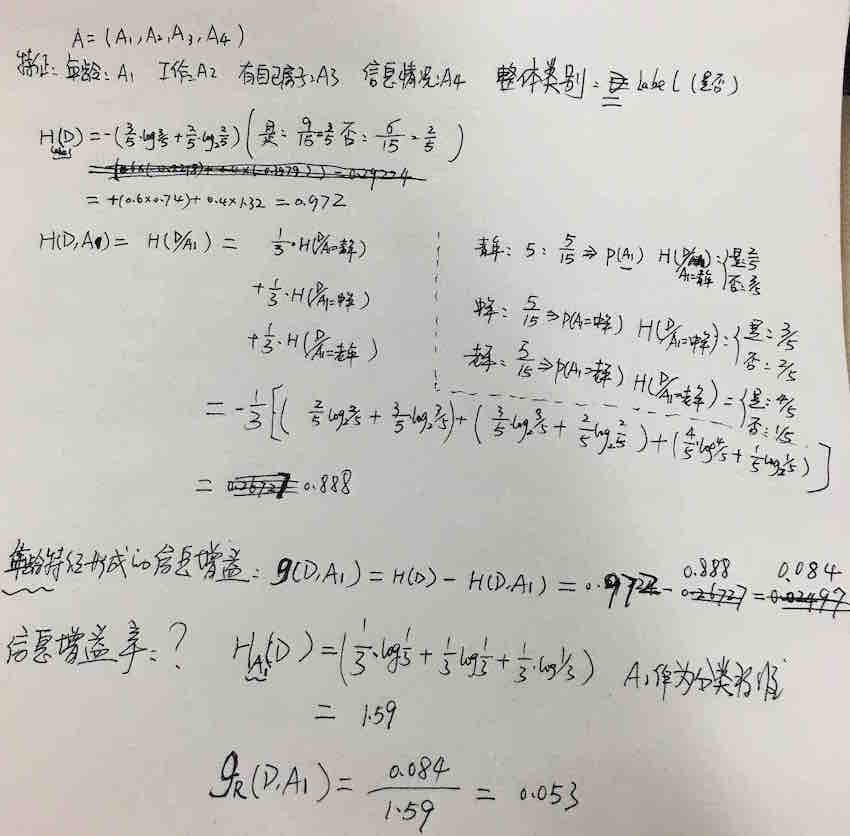 A = (A₁, A₂, A₃, A₄)
特征: 年龄: A₁ 工作: A2 有自己房子: A3 信息情况: A4 整体类别: label (是否)
H(D) = -(3/5·log3/5 + 2/5·log₂2/5) (是: 9/15=3/5 否: 6/15=2/5)
label
= +(0.6×0.74)+ 0.4×1.32 = 0.972
H(D,A1) = H(D/A₁) = 1/3·H(D/A₁=青年)
+ 1/3·H(D/A₁=中年)
+ 1/3·H(D/A₁=老年)
青年: 5: 5/15 ⇒ P(A₁) H(D/A₁=青年): {是: 2/5 否: 3/5
中年: 5/15 ⇒ P(A₁=中年) H(D/A₁=中年): {是: 3/5 否: 2/5
老年: 5/15 ⇒ P(A₁=老年) H(D/A₁=老年) = {是: 4/5 否: 1/5
= -1/3[(2/5 log₂2/5 + 3/5·log₂3/5) + (3/5 log₂3/5 + 2/5 log₂2/5) + (4/5·log4/5 + 1/5 log₂1/5)]
= 0.888
年龄特征形成的信息增益: g(D,A₁) = H(D) - H(D.A₁) = 0.972 - 0.888 = 0.084
信息增益率: ? H_A₁(D) = (1/3·log1/3 + 1/3 log1/3 + 1/3·log1/3) A₁作为分类
= 1.59
g_R(D,A₁) = 0.084/1.59 = 0.053